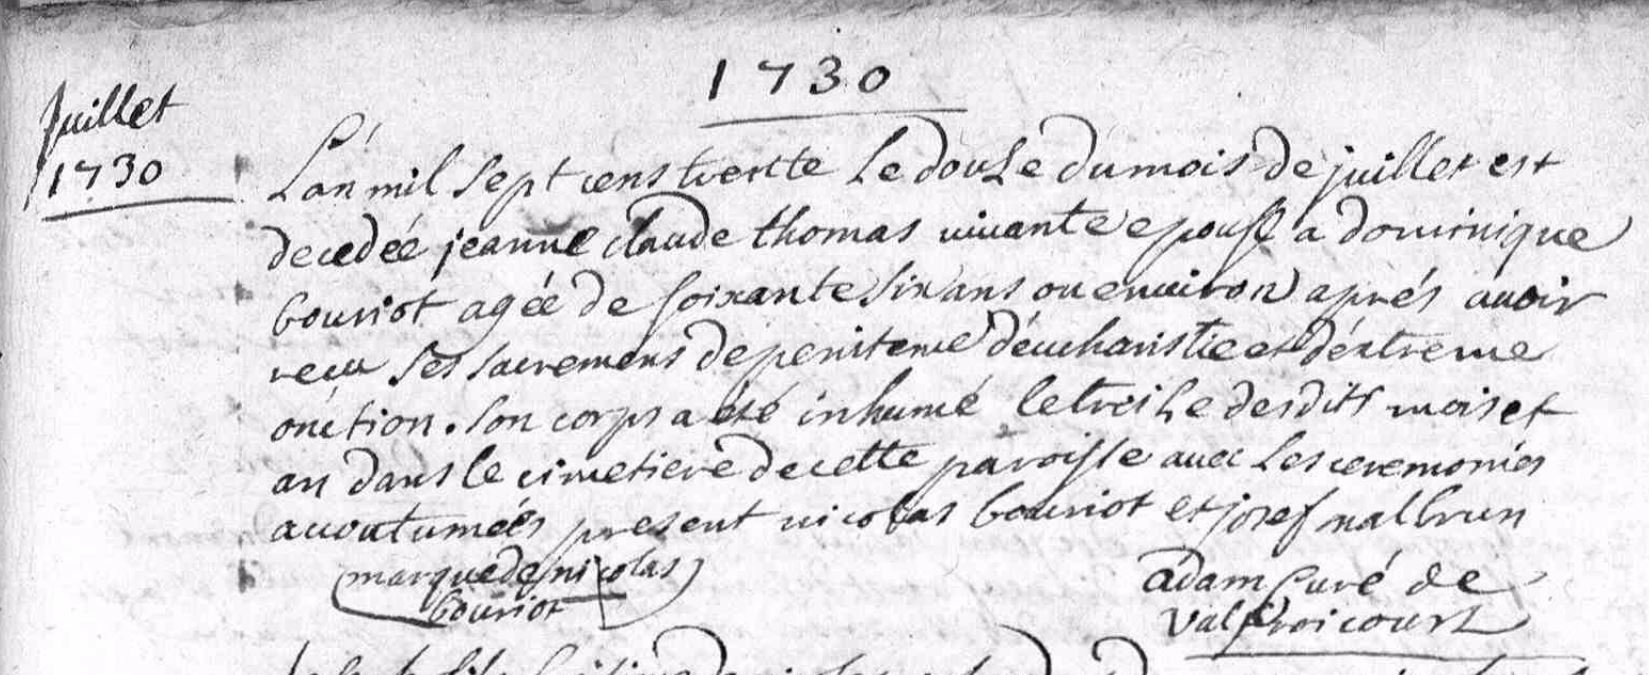 1730
juillet
1730
L'an mil sept cens trente le douze du mois de juillet est
decedée jeanne claude thomas vivante epouse a dominique
bouriot agée de soixante six ans ou environ aprés avoir
recu ses sacremens de penitence d'eucharistie et d'extreme
onction. son corps a été inhumé le treize desdits mois et
an dans le cimetiere de cette paroisse avec les ceremonies
accoutumées present nicolas bouriot et josef malbrun
marque de nicolas
bouriot
adam curé de
valfroicourt